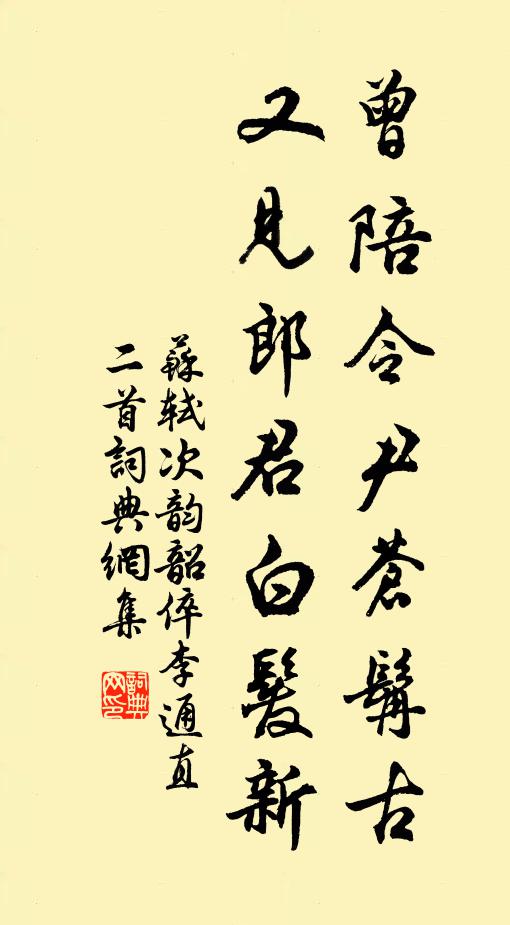 曾陪令尹蒼髯古
又見郎君白髮新
蘇軾次韵韶倅李通直
二首詞典網集
詞典網印